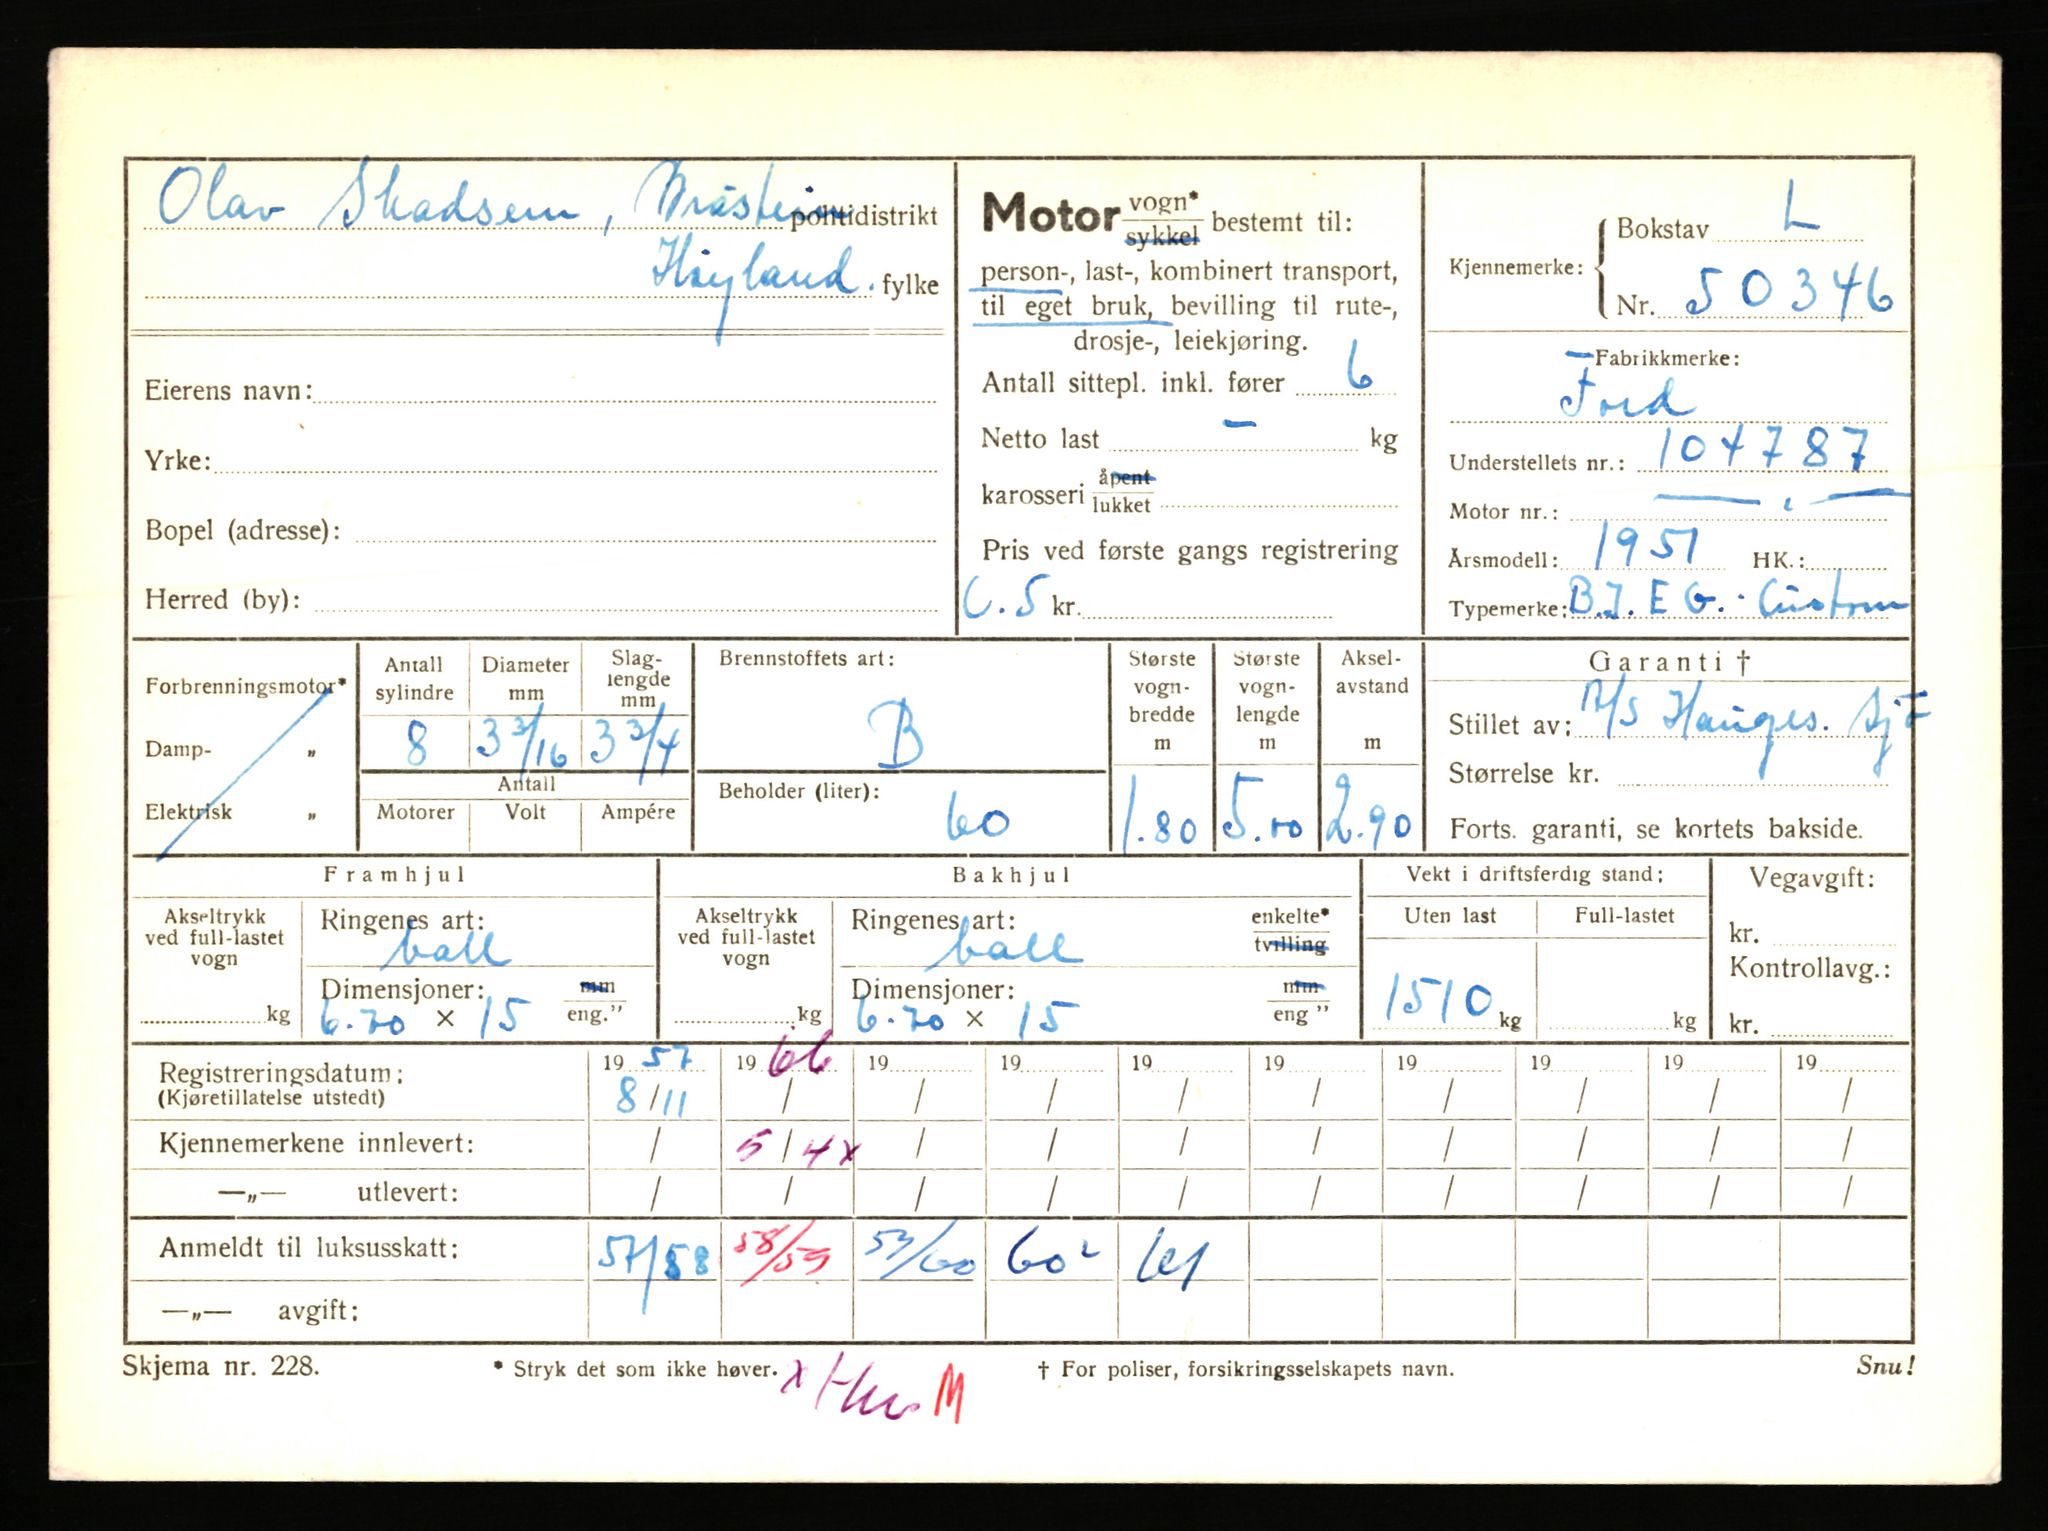 Olav Skadsem, Bråstein politidistrikt
Høyland. fylke
Eierens navn:
Yrke:
Bopel (adresse):
Herred (by):
Motor vogn* sykkel bestemt til:
person-, last-, kombinert transport,
til eget bruk, bevilling til rute-,
drosje-, leiekjøring.
Antall sittepl. inkl. fører 6
Netto last - kg
karosseri åpent lukket
Pris ved første gangs registrering
C.5 kr.
Kjennemerke: Bokstav L
Nr. 50346
Fabrikkmerke:
Ford
Understellets nr.: 104787
Motor nr.:
Årsmodell: 1951 HK.:
Typemerke: B.J.E G. Custom
Forbrenningsmotor*
Damp- „
Elektrisk „
Antall sylindre 8
Diameter mm 3 3/16
Slaglengde mm 3 3/4
Antall
Motorer Volt Ampére
Brennstoffets art:
B
Beholder (liter):
60
Største vognbredde m 1.80
Største vognlengde m 5.00
Akselavstand m 2.90
Garanti †
Stillet av: Hauges.
Størrelse kr.
Forts. garanti, se kortets bakside.
Framhjul
Akseltrykk ved full-lastet vogn
kg
Ringenes art:
ball
Dimensjoner: mm
6.70 × 15 eng.”
Bakhjul
Akseltrykk ved full-lastet vogn
kg
Ringenes art: enkelte*
ball tvilling
Dimensjoner: mm
6.70 × 15 eng ”
Vekt i driftsferdig stand:
Uten last Full-lastet
1510 kg kg
Vegavgift:
kr.
Kontrollavg.:
kr.
Registreringsdatum: 19 57 19 66 19 19 19 19 19 19 19 19
(Kjøretillatelse utstedt) 8/11 / / / / / / / / /
Kjennemerkene innlevert: / 5/4x / / / / / / / /
—„— utlevert: / / / / / / / / / /
Anmeldt til luksusskatt: 57/58 58/59 59/60 60² 61
—„— avgift:
Skjema nr. 228. * Stryk det som ikke høver. † For poliser, forsikringsselskapets navn. Snu!
x M